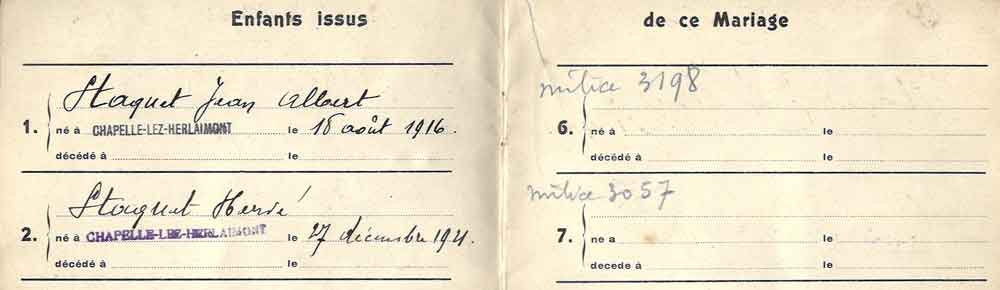 Enfants issus
Staquet Jean Albert
1. né à CHAPELLE-LEZ-HERLAIMONT le 18 août 1916.
décédé à le
Staquet Hervé
2. né à CHAPELLE-LEZ-HERLAIMONT le 27 décembre 1921.
décédé à le
de ce Mariage
milice 3198
6. né à le
décédé à le
milice 3057
7. ne a le
decede à le